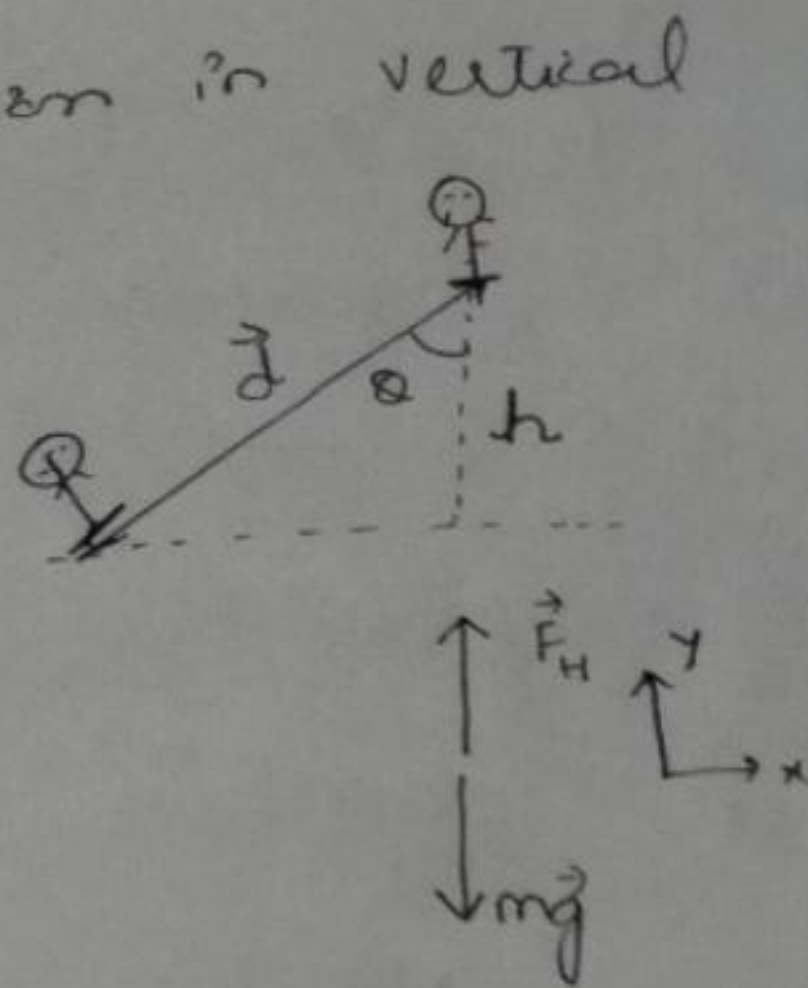 in vertical
d
θ
h
F_H
y
x
mg